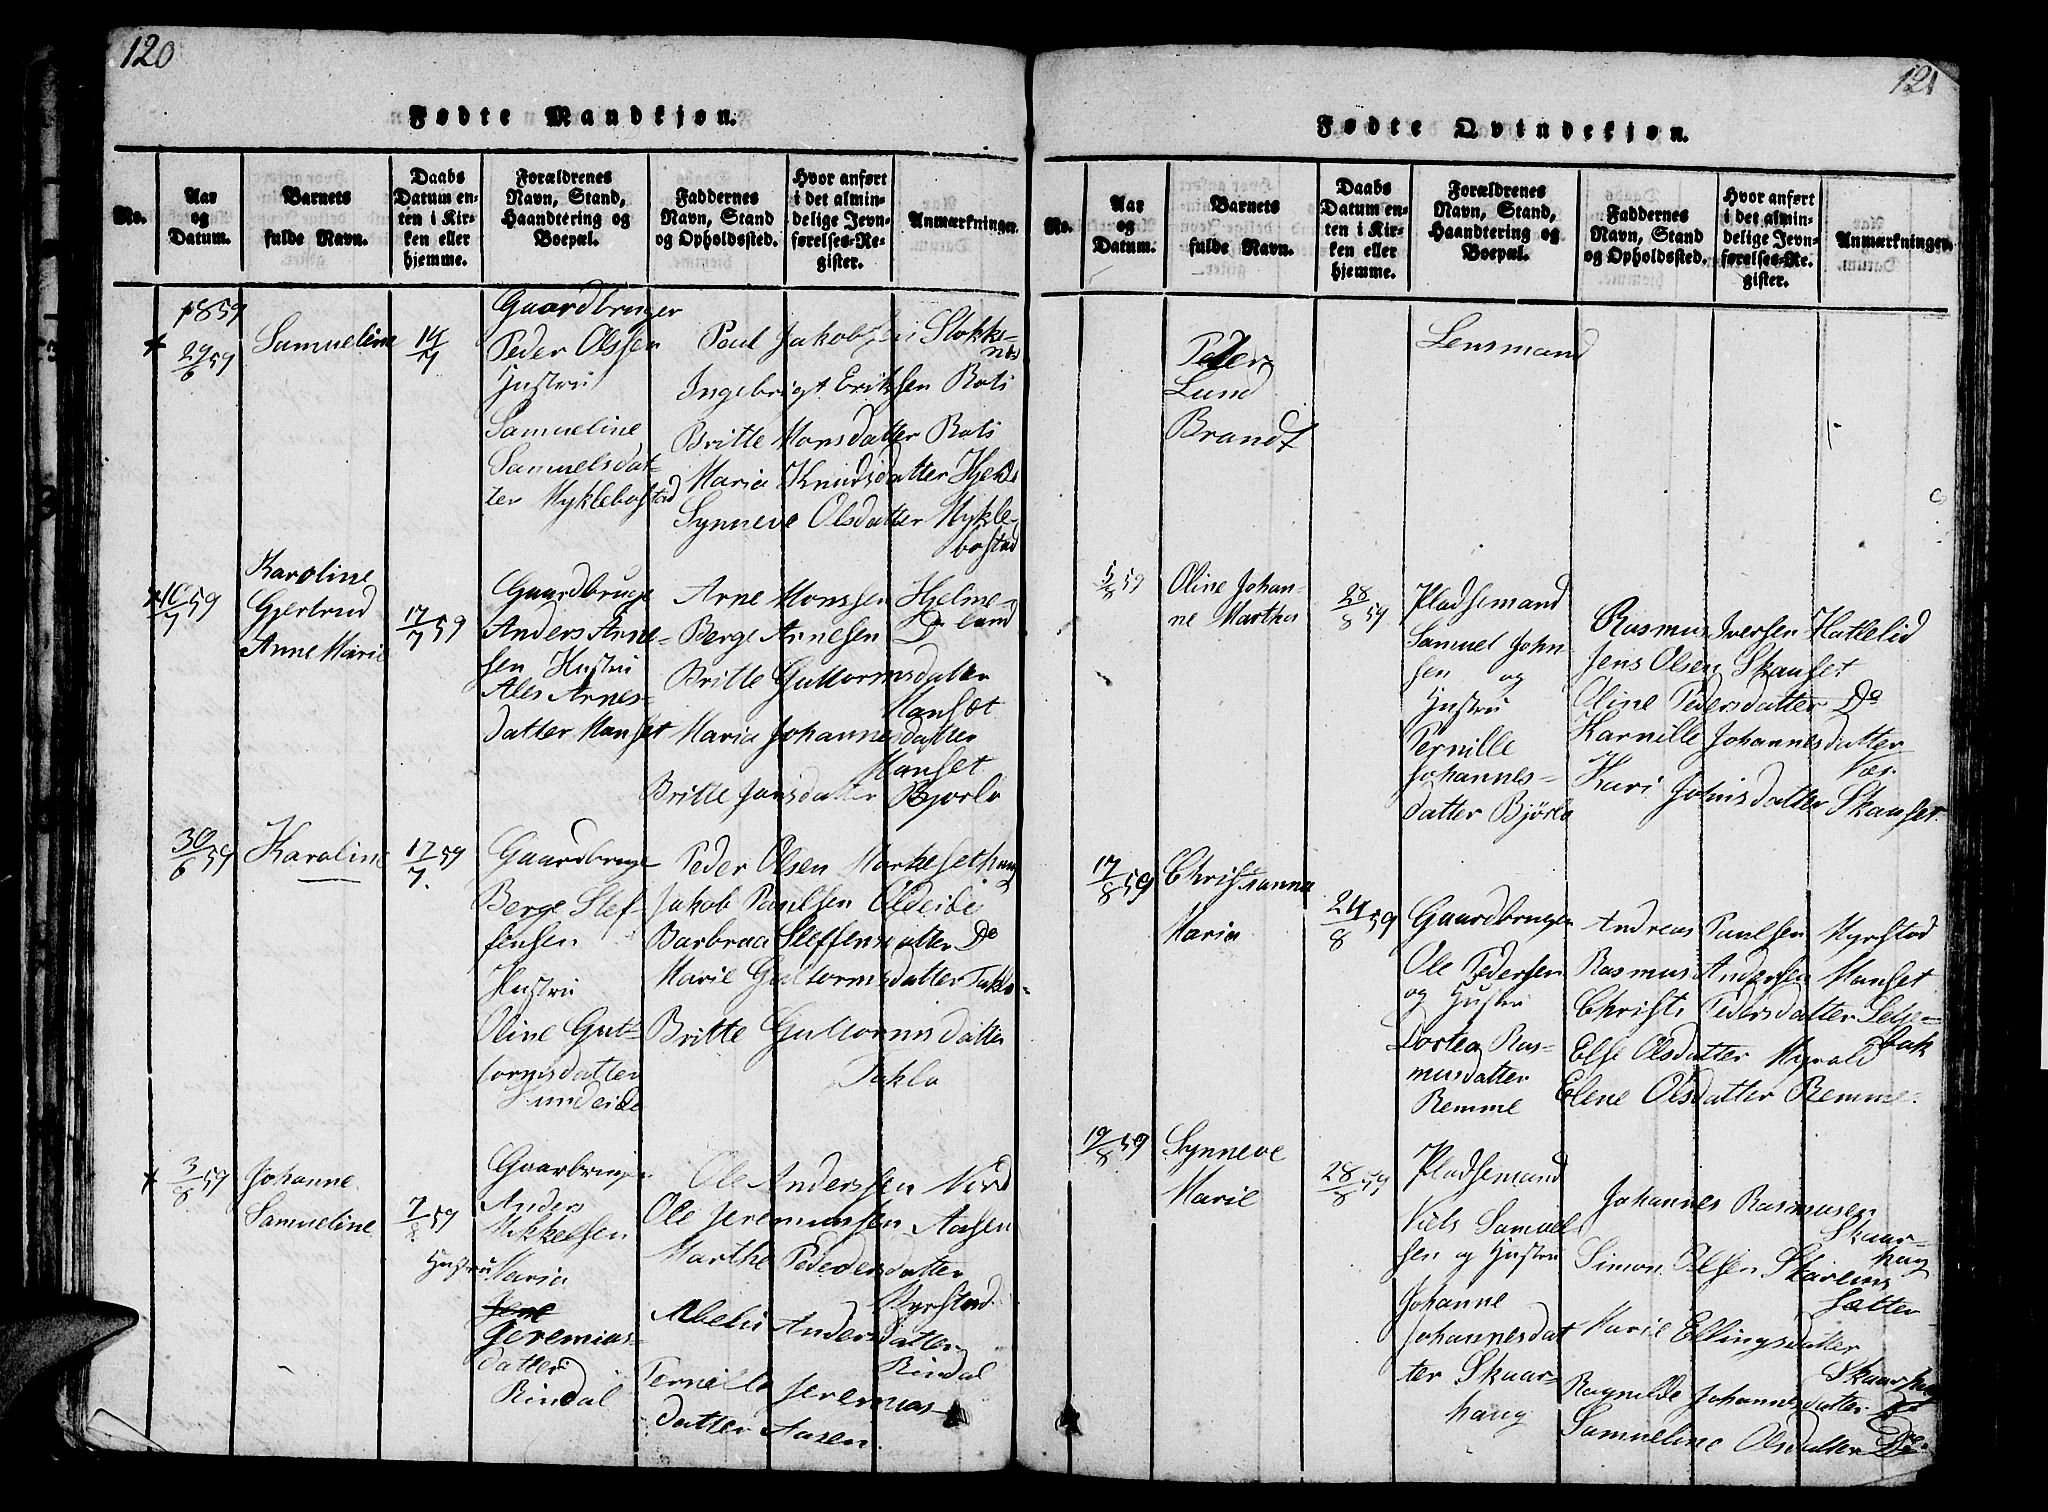 120
Fødte Mandkjøn.
No.
Aar og Datum.
Barnets fulde Navn.
Daabs Datum enten i Kirken eller hjemme.
Forældrenes Navn, Stand, Haandtering og Boepæl.
Faddernes Navn, Stand og Opholdssted.
Hvor anført i det almindelige Jevnførelses-Register.
Anmærkninger.
1859
29/6 59
Samueline
14/7
Gaardbruger
Peder Olsen
Hustru
Samueline
Samuelsdat-
ter Myklebostad
Poul Jakobsen Stokke-
næs
Ingebrigt Eriksen Roti
Britte Monsdatter Roti
Maria Knudsdatter Hjelle
Synneve Olsdatter Mykle-
bostad
10/7 59
Karoline
Gjertrud
Anne Marie
17/7 59
Gaardbruge
Anders Arne-
sen Hustru
Ales Arnes-
datter Manset
Arne Monssen Hjelme-
land
Berge Arnesen Do
Britte Guttormsdatter
Mansæt
Maria Johannesdatter
Manset
Britte Jonsdatter Bjørlo
30/6 59
Karoline
17/7 59
Gaardbruge
Berge Stef-
fensen
Hustru
Oline Gut-
tormsdatter
Lundeide
Peder Olsen Markesethaug
Jakob Paulsen Oldeide
Barbraa Steffensdatter Do
Marie Guttormsdatter Taklo
Britte Guttormsdatter
Taklo
3/8 59
Johanne
Samueline
7/8 59
Gaarbruge
Anders
Mikkelsen
Hustru Maria
Jeremias-
datter
Rindal
Ole Anderssen Nord
Ole Jeremiassen Aasen
Marthe Pededersdatter
Myrstad
Abelu Andersdatter
Rindal
Pernille Jeremias-
datter Aasen.
121
Fødte Qvindekjøn.
No.
Aar og Datum.
Barnets fulde Navn.
Daabs Datum enten i Kirken eller hjemme.
Forældrenes Navn, Stand, Haandtering og Boepæl.
Faddernes Navn, Stand og Opholdssted.
Hvor anført i det almindelige Jevnførelses-Register.
Anmærkninger.
Peder
Lund
Brandt
Lensmand
5/8 59
Oline Johan-
ne Martha
28/8 59
Pladsemand
Samuel John-
sen og
Hustru
Pernille
Johannes-
datter Bjørlo
Rasmus Iversen Hatlelid
Jens Olsen Skanset
Oline Pedersdatter Do
Karnille Johannesdatter
Kari Johnsdatter Skanset.
17/8 59
Christianna
Maria
24/8 59
Gaardbruger
Ole Pedersen
og Hustru
Dortea Ras-
musdatter
Remme
Andreas Paulsen Myrstad
Rasmus Andersen Manset
Christi Pedersdatter Letje-
bak
Else Olsdatter Myrold
Elene Olsdatter Remme.
19/8 59
Synneve
Marie
28/8 59
Pladsemand
Niels Samuel
sen og Hustru
Johanne
Johannesdat
ter Skaar-
haug
Johannes Rasmusen
Skaar-
haug
Simon Olsen Skarens
sætter
Marie Ellingsdatter
Skaarhaug
Ragnilde Johannesdatter
Samueline Olsdatter Do